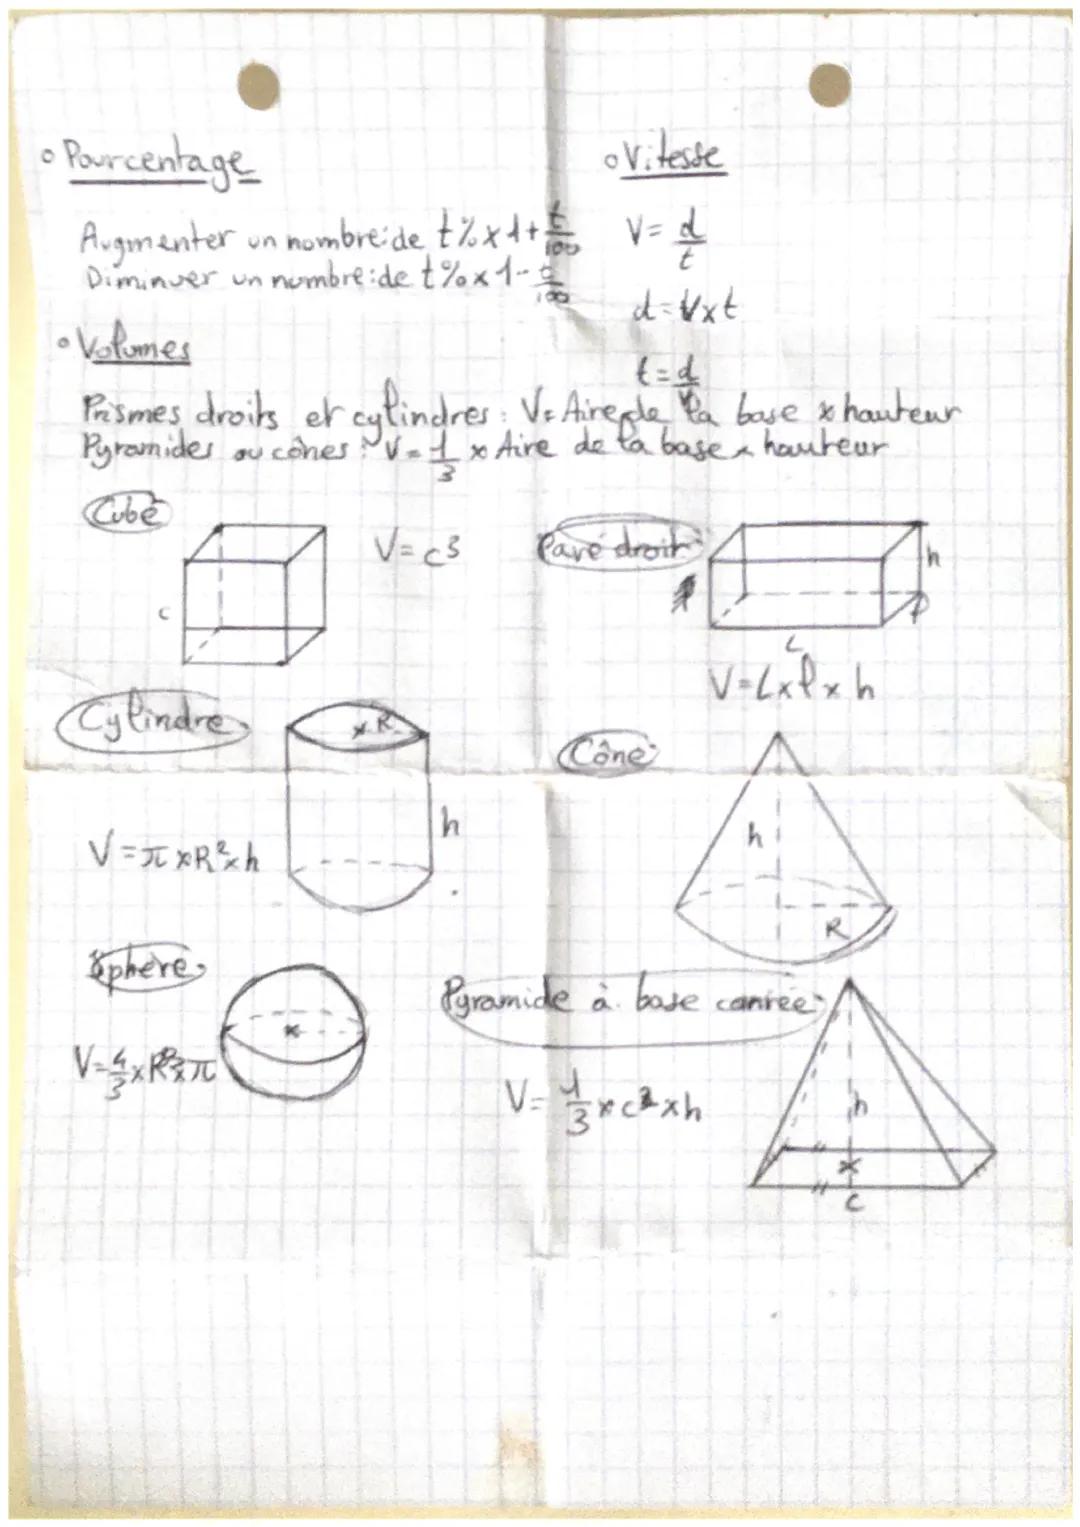 ° Pourcentage
Augmenter un nombre : de t% x 1 + t/100
Diminuer un nombre : de t% x 1 - t/100
° Vitesse
V = d/t
d = V x t
t = d/V
° Volumes
Prismes droits et cylindres : V = Aire de la base x hauteur
Pyramides ou cônes : V = 1/3 x Aire de la base x hauteur
Cube
c
V = c³
Pavé droit
h
l
L
V = L x l x h
Cylindre
R
h
V = π x R² x h
Cône
h
R
Sphère
V = 4/3 x R³ x π
Pyramide à base carrée
h
c
V = 1/3 x c² x h